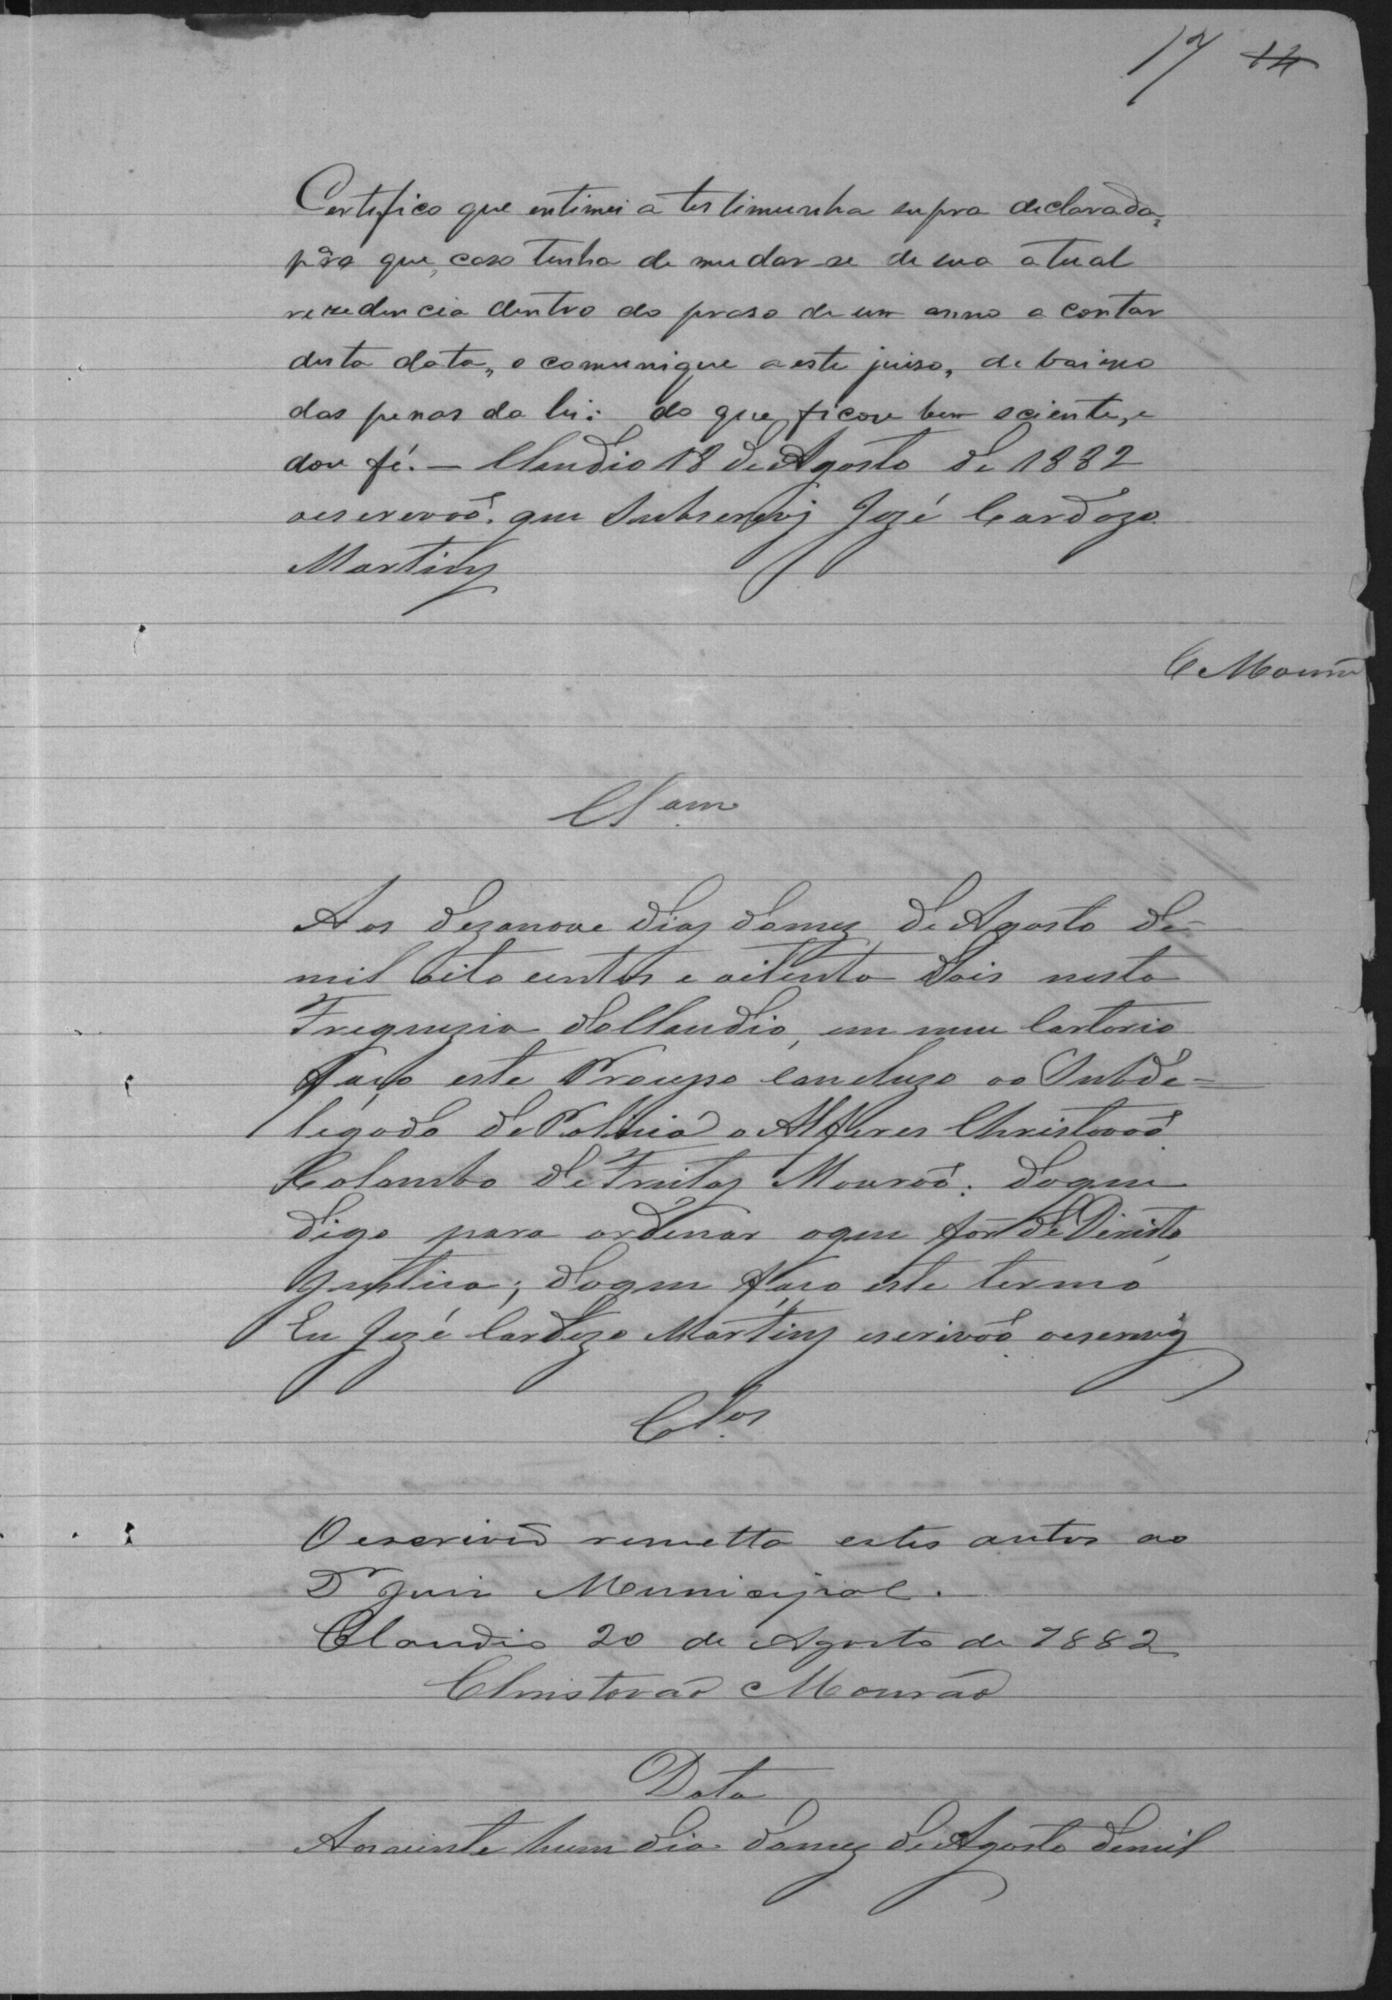 17 14
Certifico que entimei a testimunha supra declarada,
pâra que, caso tenha de mudar-se de sua atual
rezedencia dentro do praso de um anno a contar
desta data, o comunique a este juiso, de baixo
das penas da lei: do que ficou bem sciente, e
dou fé. — Claudio 18 de Agosto de 1882
oescrevaõ. que Subscrevij Jozé Cardozo
Martins
C Mourão
Clsam
Aos dezanove dias domez de Agosto de=
mil oito centos e oitenta dois nesta
Freguezia doClaudio, em meu Cartorio
faço este Processo Concluzo ao Subde=
legado de Policia o Alferes Christovaõ
Colombo de Freitas Mouraõ: doque
digo para ordenar oque fôr de Direito
Justica; doque faço este termo
Eu Jozé Cardozo Martins escrivaõ oescrevij
Clos
O escrivão remetta estes autos ao
Dr Juiz Municipal.
Claudio 20 de Agosto de 1882
Christovão Mourão
Data
Aos vinte hum dia domez de Agosto demil